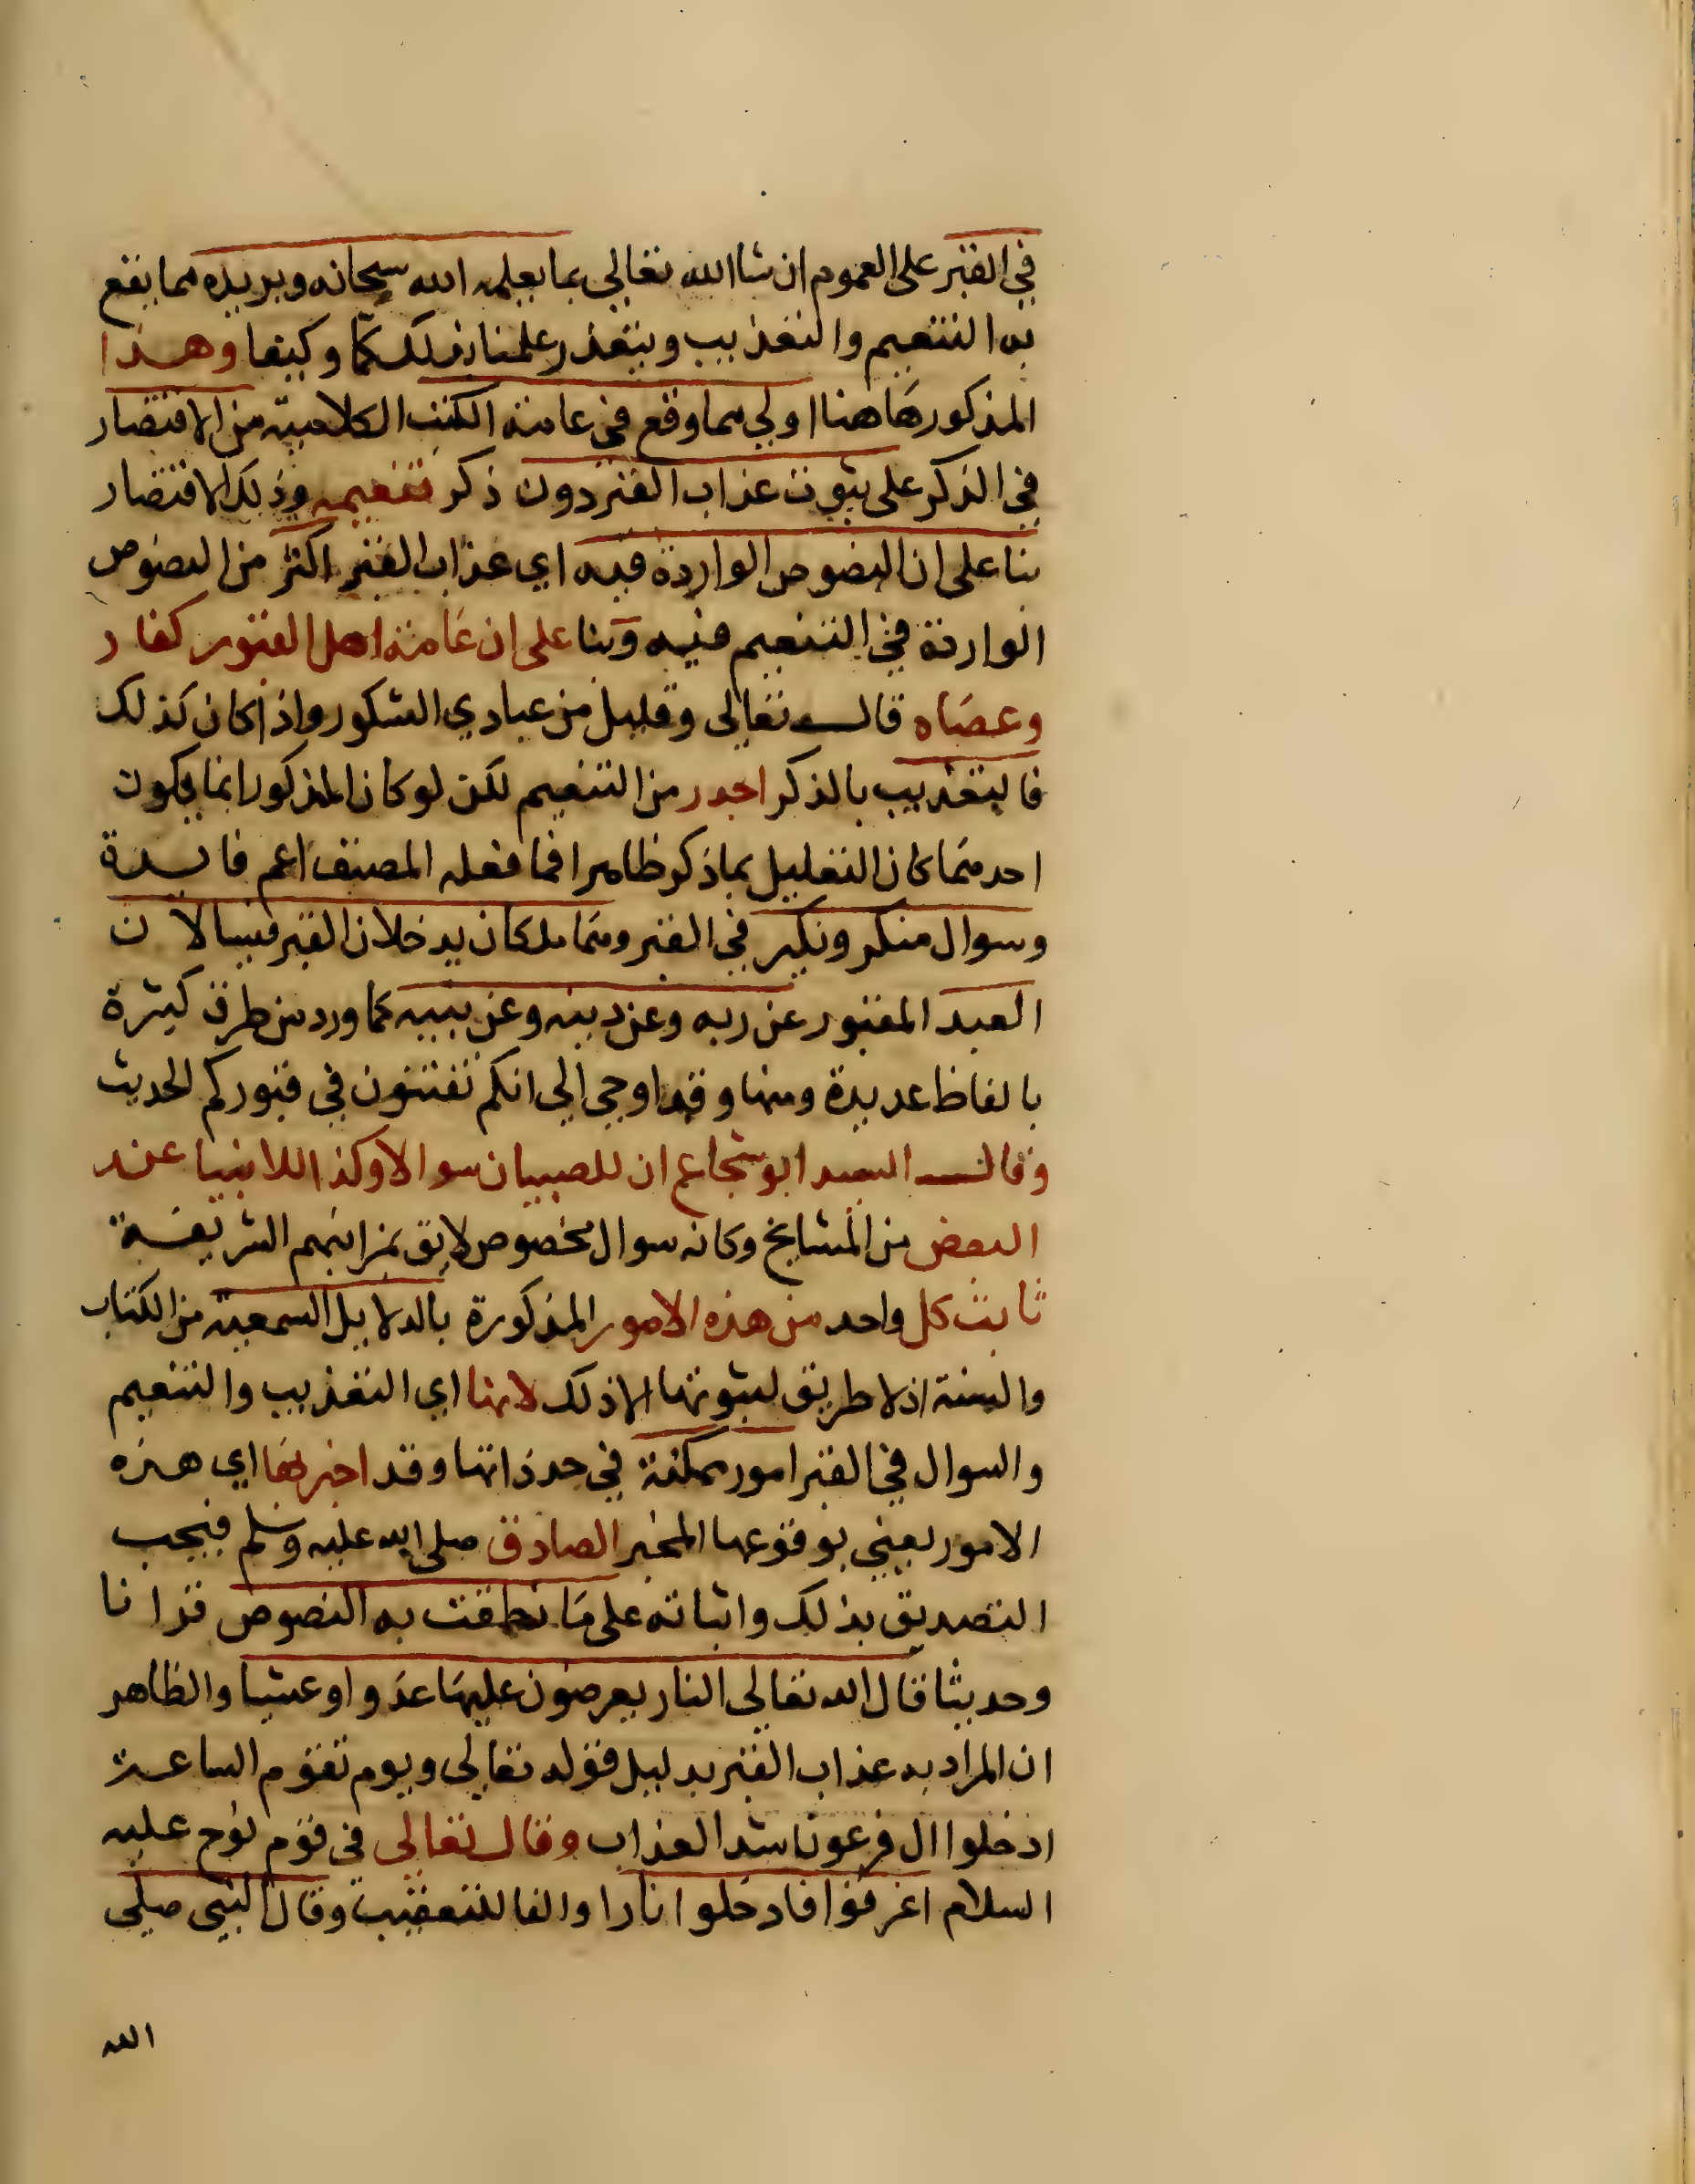 في القبر على العموم ان شا الله تعالى بما يعلمه الله سبحانه ويريده مما يقع
به التنعيم والتعذيب ويتعذر علمنا بذلك كمّا وكيفا وهذا
المذكور هاهنا اولى مما وقع في عامة الكتب الكلامية من الاقتصار
في الذكر على ثبوت عذاب القبر دون ذكر تنعيمه وذلك الاقتصار
بنا على ان النصوص الواردة فيه اي عذاب القبر اكثر من النصوص
الواردة في التنعيم فيه وبنا على ان عامة اهل القبور كفار
وعصاه قال تعالى وقليل من عبادي الشكور واذا كان كذلك
فالتعذيب بالذكر اجدر من التنعيم لكن لو كان المذكور انما يكون
احدهما كان التعليل بما ذكر ظاهرا فما فعله المصنف اعم فايدة
وسوال منكر ونكير في القبر وهما ملكان يدخلان القبر فيسالان
العبد المقبور عن ربه وعن دينه وعن نبيه كما ورد من طرق كثيرة
بالفاظ عديدة ومنها وقد اوحي الي انكم تفتنون في قبوركم الحديث
وقال السيد ابو شجاع ان للصبيان سوالا وكذا للانبيا عند
البعض من المشايخ وكانه سوال مخصوص لايق بمراتبهم الشريفة
ثابت كل واحد من هذه الامور المذكورة بالدلايل السمعية من الكتاب
والسنة اذ لا طريق لثبوتها الا ذلك لانها اي التعذيب والتنعيم
والسوال في القبر امور ممكنة في حد ذاتها وقد اخبر بها اي هذه
الامور يعني بوقوعها المخبر الصادق صلى الله عليه وسلم فيجب
التصديق بذلك واثباته على ما نطقت به النصوص قرانا
وحديثا قال الله تعالى النار يعرضون عليها غدوا وعشيا والظاهر
ان المراد به عذاب القبر بدليل قوله تعالى ويوم تقوم الساعة
ادخلوا ال فرعون اشد العذاب وقال تعالى في قوم نوح عليه
السلام اغرقوا فادخلوا نارا والفا للتعقيب وقال النبي صلى
الله